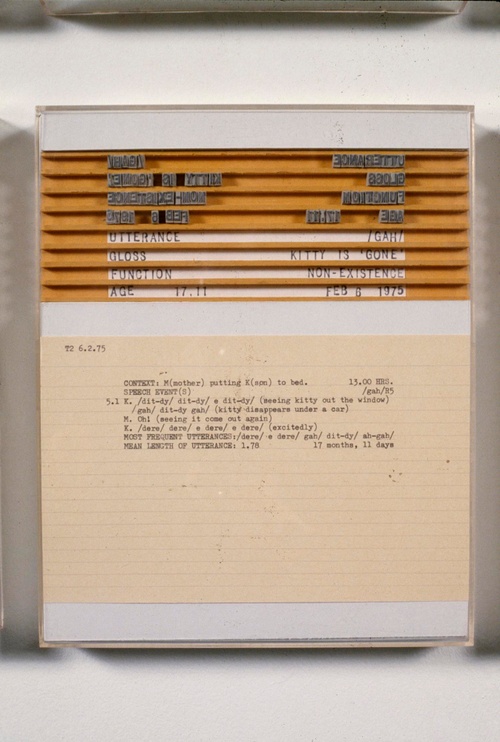 UTTERANCE /GAH/
GLOSS KITTY IS 'GONE'
FUNCTION NON-EXISTENCE
AGE 17.11 FEB 6 1975
UTTERANCE /GAH/
GLOSS KITTY IS 'GONE'
FUNCTION NON-EXISTENCE
AGE 17.11 FEB 6 1975
T2 6.2.75
CONTEXT: M(mother) putting K(son) to bed. 13.00 HRS.
SPEECH EVENT(S) /gah/R5
5.1 K. /dit-dy/ dit-dy/ e dit-dy/ (seeing kitty out the window)
/gah/ dit-dy gah/ (kitty disappears under a car)
M. Oh! (seeing it come out again)
K. /dere/ dere/ e dere/ e dere/ (excitedly)
MOST FREQUENT UTTERANCES:/dere/ e dere/ gah/ dit-dy/ ah-gah/
MEAN LENGTH OF UTTERANCE: 1.78 17 months, 11 days